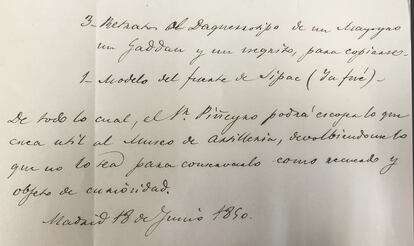 3- Retratos al Daguerrotipo de un Mayoyao
un Gaddan y un negrito, para copiarse-
1- Modelo del fuerte de Sipac (Ya fué)-
De todo lo cual, el Sr. Piñeyro podrá escoger lo que
crea util al Museo de Artilleria, devolbiendome lo
que no lo sea para conservarlo como recuerdo y
objeto de curiosidad.
Madrid 18 de Junio 1850.